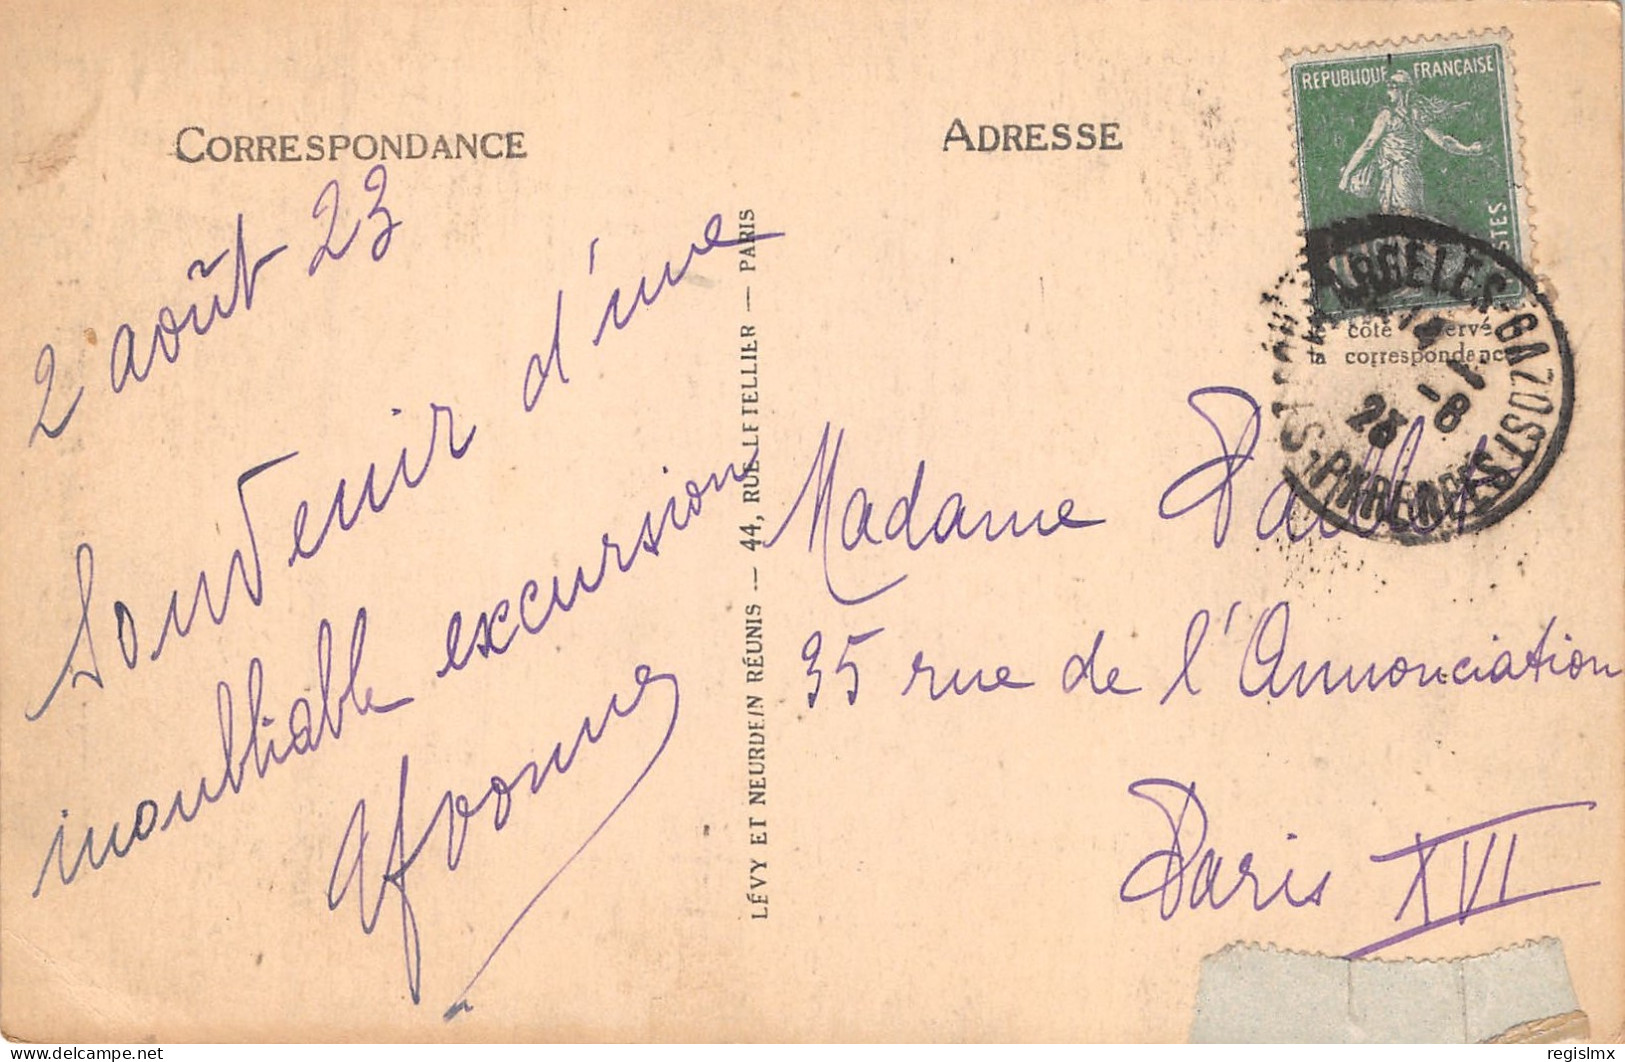 CORRESPONDANCE
ADRESSE
REPUBLIQUE FRANÇAISE
2 août 23
Souvenir d'une
inoubliable excursion
Yvonne
LÉVY ET NEURDEIN RÉUNIS — 44, RUE LETELLIER — PARIS
ARGELES-GAZOST
-8
23
PYRENEES
côté
la correspondance
Madame
35 rue de l'Annonciation
Paris XVI
regislmx
delcampe.net